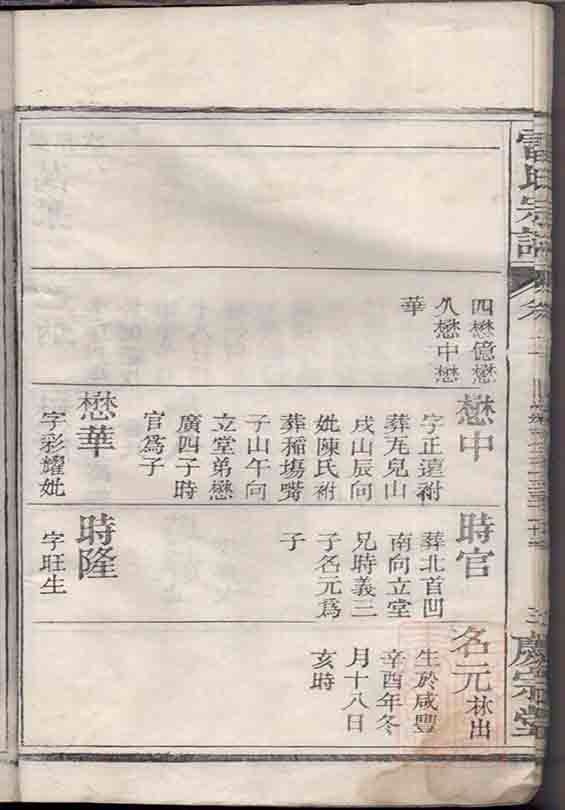 雷氏宗譜
慶宗堂
四懋億懋
久懋中懋
華
懋中
字正遠祔
葬瓦兒山
戌山辰向
妣陳氏祔
葬稲塲嘴
子山午向
立堂弟懋
廣四子時
官爲子
懋華
字彩耀妣
時官
葬北首凹
南向立堂
兄時義三
子名元爲
子
時隆
字旺生
名元林出
生於咸豐
辛酉年冬
月十八日
亥時